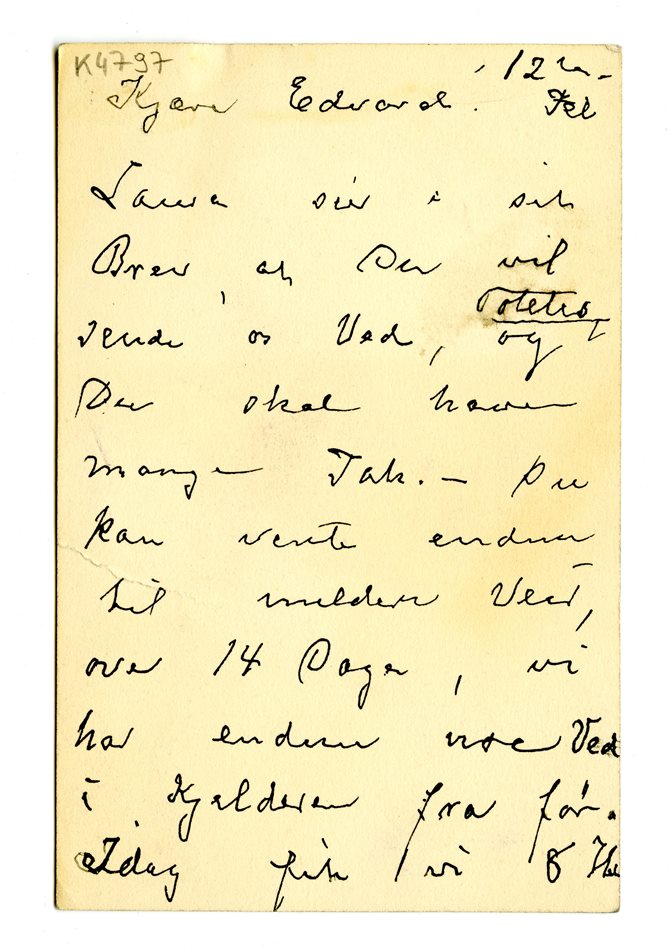 K4797
12
Kjære Edvard. Feb
Laura sier i sit
Brev, at Du vil
Poteter
sende os Ved, og
Du skal have
mange Tak. – Du
kan vente endnu
til mildere Veir,
over 14 Dage, vi
har endnu noe Ved
i Kjelderen fra før.
Idag fik vi 8